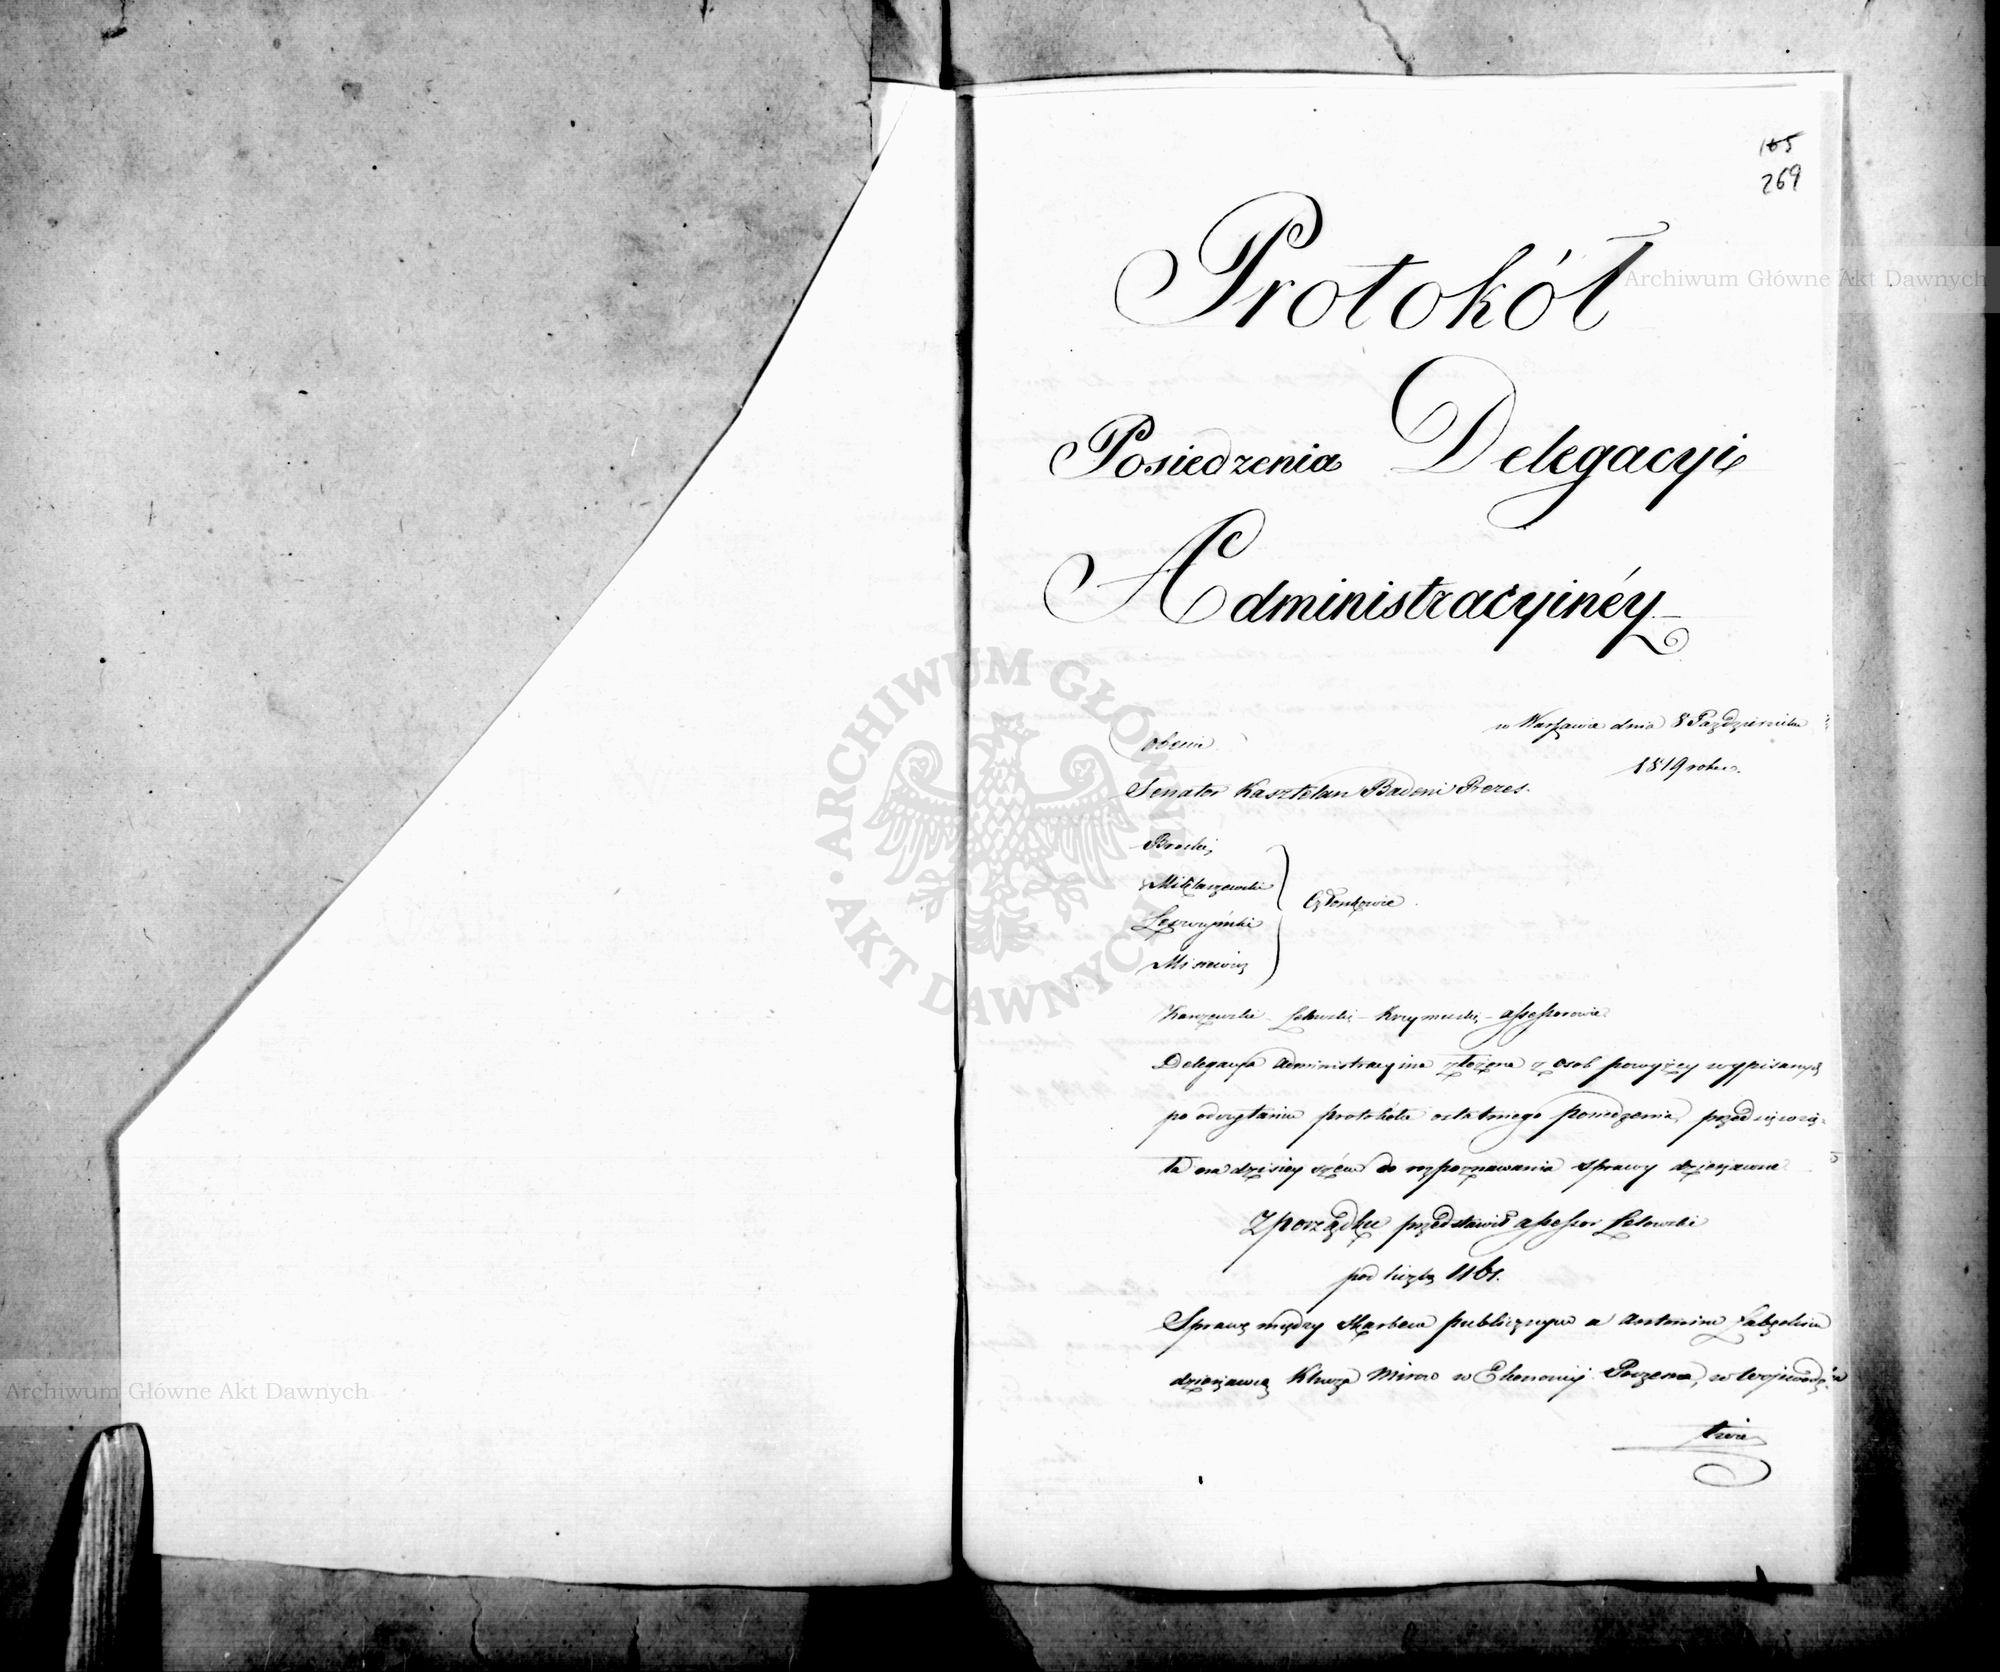 165
269
Protokół
Posiedzenia Delegacyi
Administracyinéy
w Warszawie dnia 8 Października
1819 roku.
obecni
Senator Kasztelan Badeni Prezes.
Brocki,
Miklaszewski
Członkowie
Leszczyński
Misiewicz
Karczewski - Lelewski - Krzymuski - assessorowie
Delegacya administracyina złożona z osob powyżey wypisanych
po odczytaniu protokołu ostatniego posiedzenia, przedsięwzię-
ła na dzisiey do rozpoznawania sprawy dzierżawne
Z porządku przedstawił assessor Lelowski
pod liczbą 1161.
Sprawę między Skarbem publicznym a Antonim
dzierżawcą Klucza Mirow w Ekonomij, w Wojewodz-
twie
Archiwum Główne Akt Dawnych
Archiwum Główne Akt Dawnych
ARCHIWUM GŁÓWNE AKT DAWNYCH